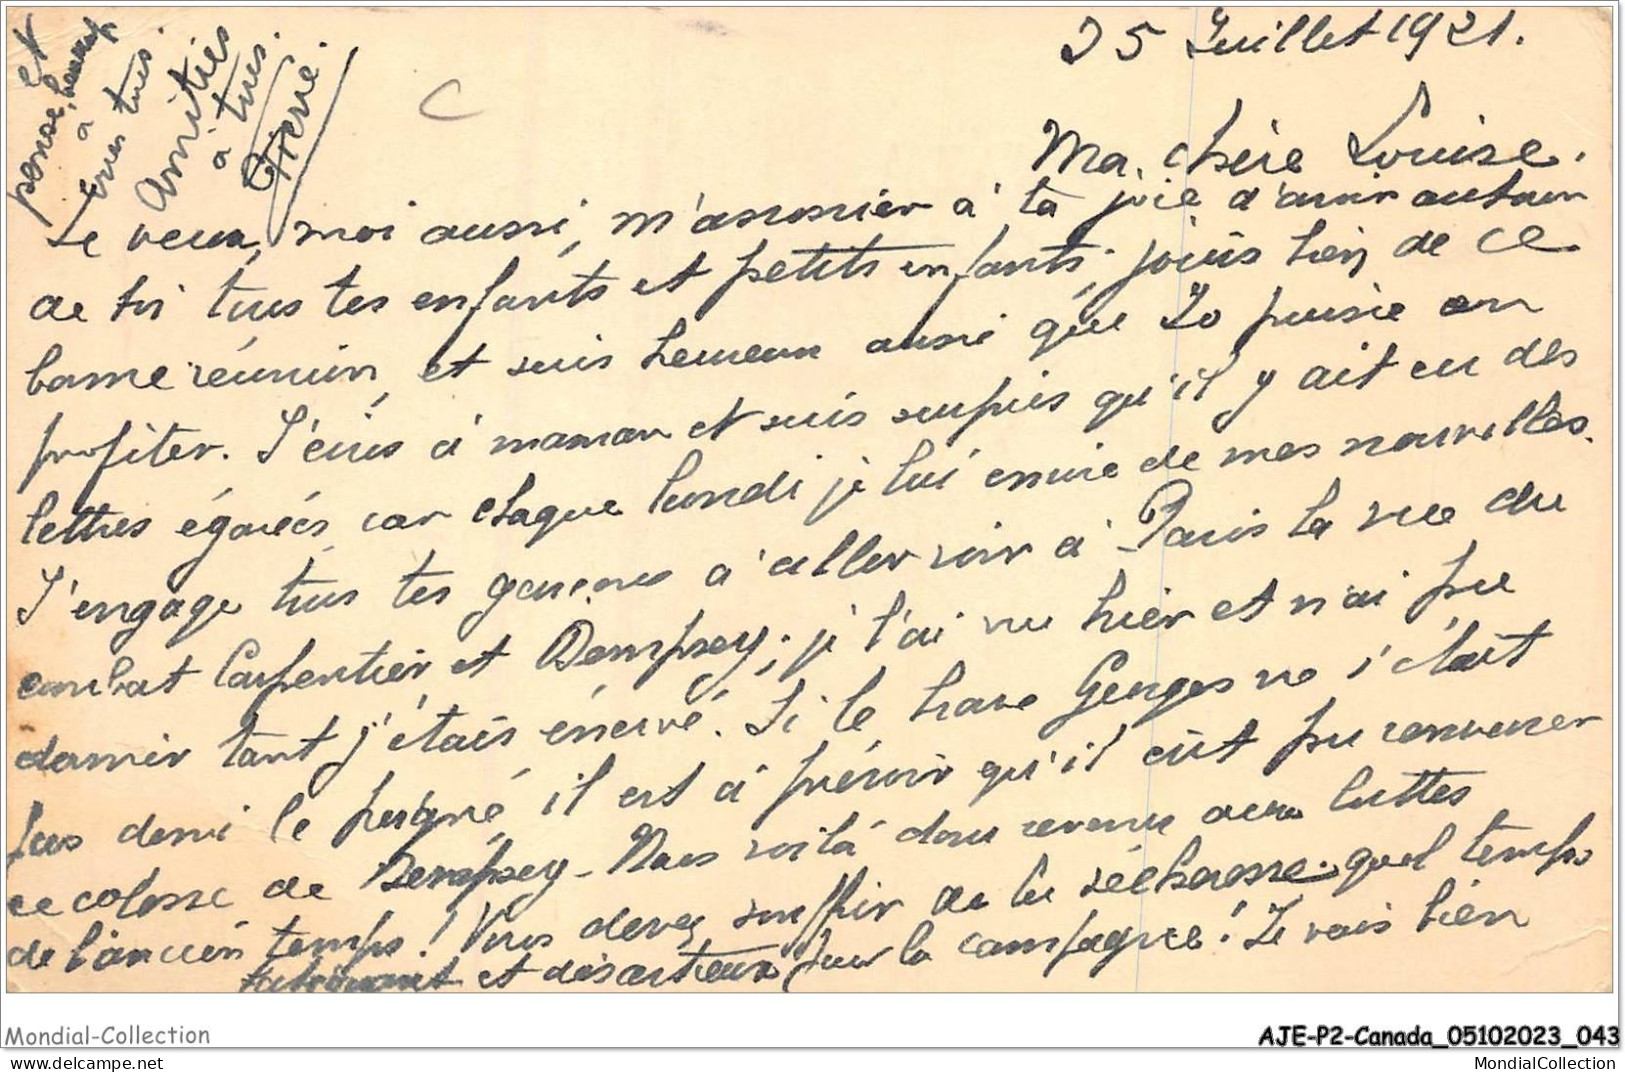 25 Juillet 1921.
Ma chère Louise.
Je veux, moi aussi, m'associer à ta joie d'avoir autour
de toi tous tes enfants et petits enfants; jouis bien de ce
bonne réunion, et suis heureux aussi que Jo puisse en
profiter. J'écris à maman et suis surpris qu'il y ait eu des
lettres égarées car chaque lundi je lui envoie de mes nouvelles.
J'engage tous tes garçons à aller voir à Paris la vue du
combat Carpentier et Dempsey; je l'ai vu hier et n'ai pu
dormir tant j'étais énervé. Si le brave Georges ne s'était
pas demi le poignet il est à prévoir qu'il eût pu renverser
ce colosse de Dempsey - Nous voilà donc revenus aux luttes
de l'ancien temps! Vous devez souffrir de la sécheresse. quel temps
et désastreux pour la campagne! Je vais bien
et
pense, heureux
à
vous tous.
Amitiés
à tous.
Pierre.
C
Mondial-Collection
AJE-P2-Canada_05102023_043
MondialCollection